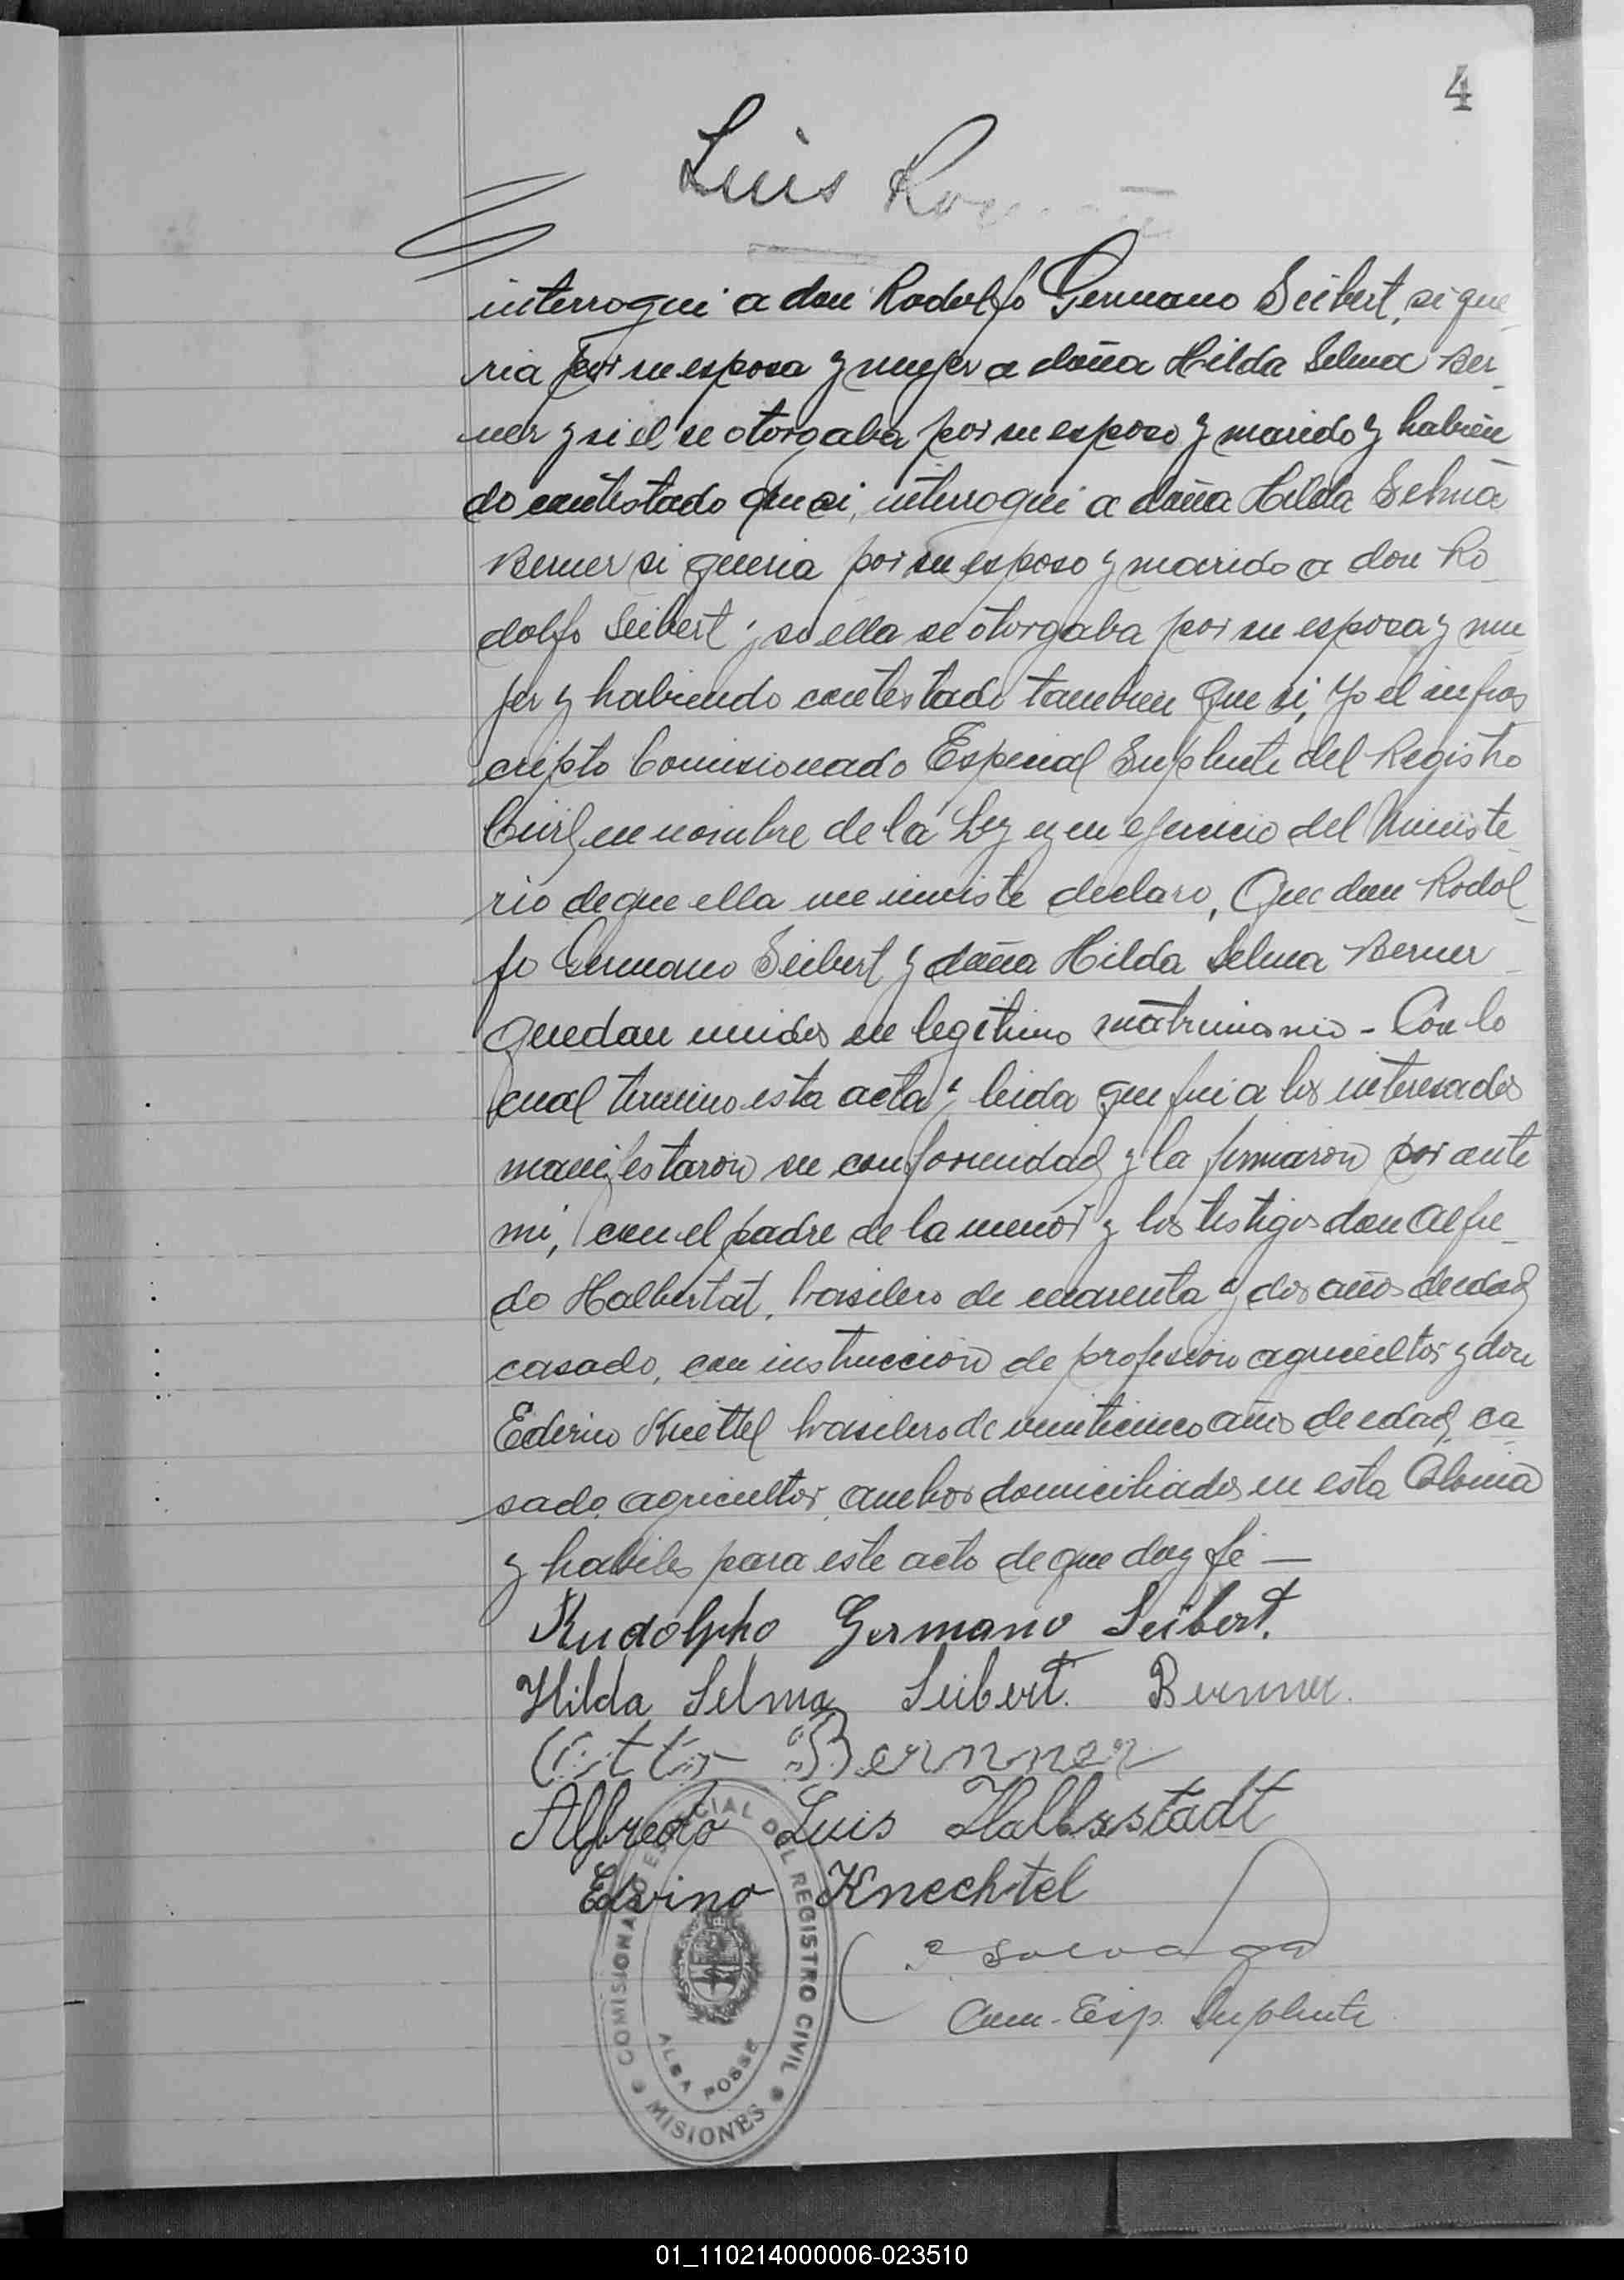 4
Luis
interrogui a don Rodolfo Germano Seibert, si que
ria por su esposa y mujer a doña Hilda Selma Ber
ner y si el se otorgaba por su esposo y marido y habien
do contestado que si, interrogui a doña Hilda Selma
Berner si queria por su esposo y marido a don Ro
dolfo Seibert y si ella se otorgaba por su esposa y mu
jer y habiendo contestado tambien que si, yo el infras
cripto Comisionado Especial Suplente del Registro
Civil, en nombre de la Ley y en ejercicio del Ministe
rio de que ella me inviste declaro, Que don Rodol
fo Germano Seibert y doña Hilda Selma Berner
quedan unidos en legitimo matrimonio - Con lo
cual termino esta acta y leida que fui a los interesados
manifestaron su conformidad y la firmaron por ante
mi, con el padre de la menor y los testigos don Alfre
do Halbertat, brasilero de cuarenta y dos años de edad
casado, con instruccion de profesion agricultor y don
Ederino Knettel brasilero de veinticinco años de edad, ca
sado, agricultor, ambos domiciliados en esta Colonia
y habiles para este acto de que doy fe —
Rudolpho Germano Seibert.
Hilda Selma Seibert. Bernner.
Otto Bernner
Alfredo Luis Halberstadt
Edvino Knechtel
Com. Esp. Suplente
COMISIONADO ESPECIAL DEL REGISTRO CIVIL
ALBA POSSE
MISIONES
01_110214000006-023510